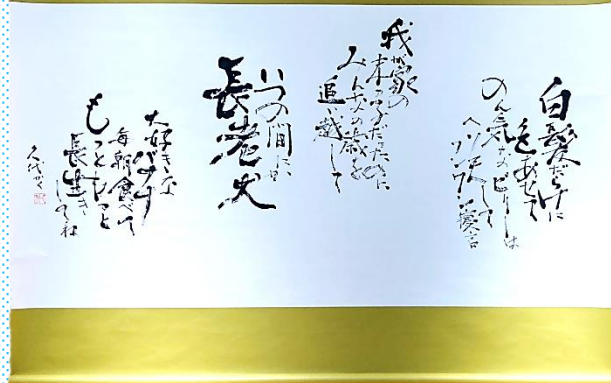 白髪だらけに
色あせて
のん気なビリーは
ヘソ天して
ワンワン寝言
我が家の
末っ子だったのに
みんなの歳を
追い越して
いつの間にか
長老犬
大好きな
バナナ
毎朝食べて
もっともっと
長生き
してね